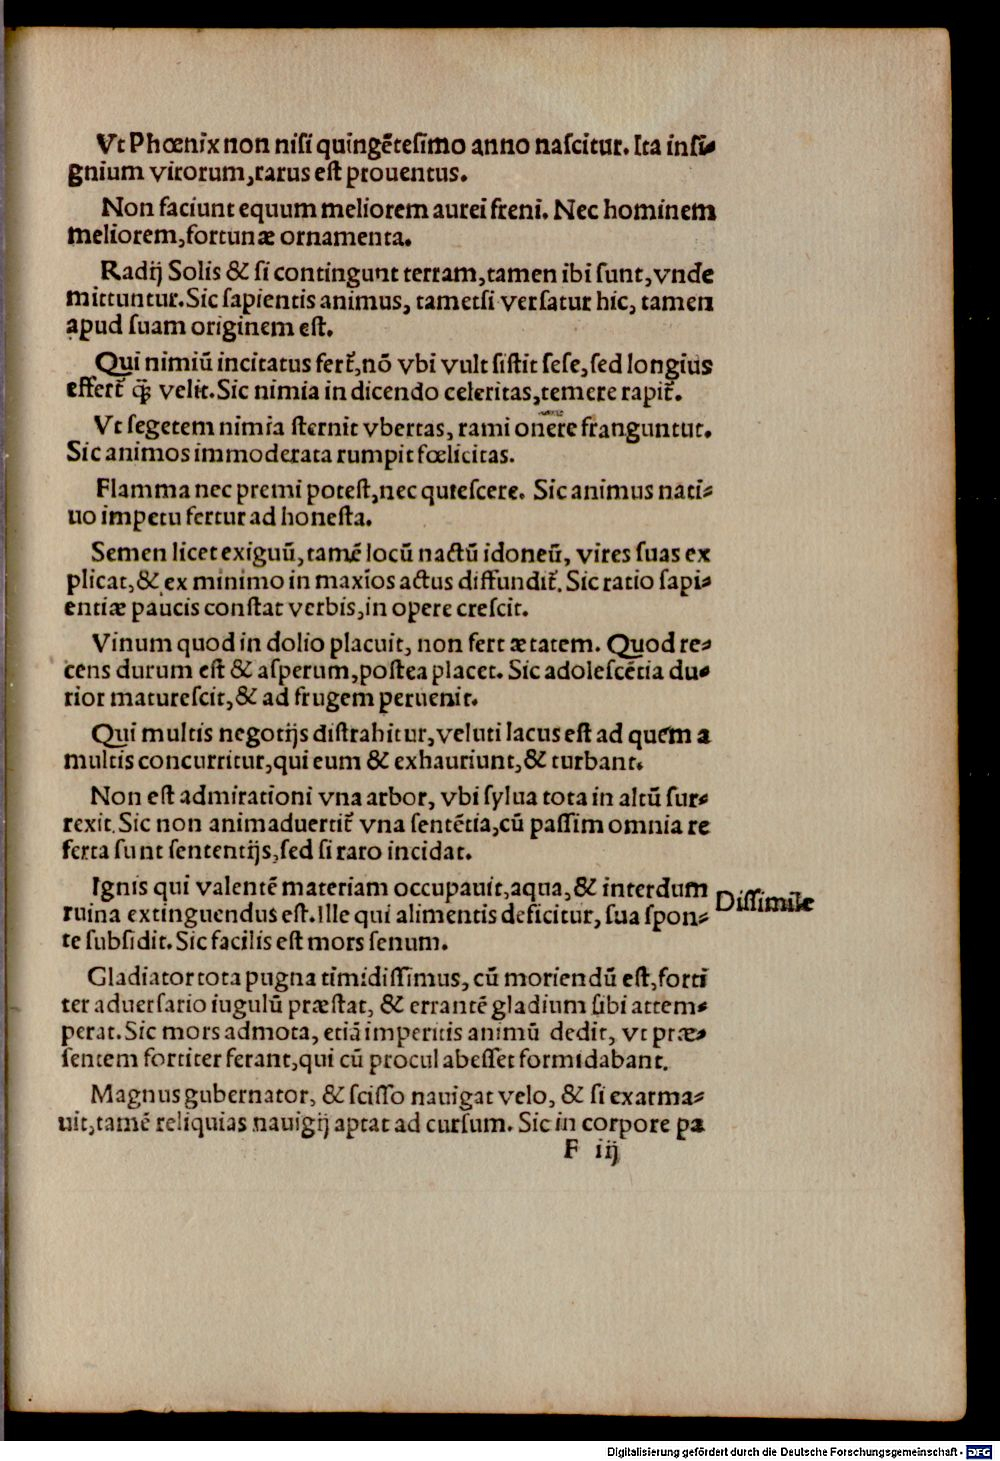 Vt Phœnix non niſi quingẽteſimo anno naſcitur. Ita inſi⸗
gnium virorum, rarus eſt prouentus.
Non faciunt equum meliorem aurei freni. Nec hominem
meliorem, fortunæ ornamenta.
Radij Solis & ſi contingunt terram, tamen ibi ſunt, vnde
mittuntur. Sic ſapientis animus, tametſi verſatur hic, tamen
apud ſuam originem eſt.
Qui nimiũ incitatus fert᷑, nõ vbi vult ſiſtit ſeſe, ſed longius
effert᷑ q̃ velit. Sic nimia in dicendo celeritas, temere rapit᷑.
Vt ſegetem nimia ſternit vbertas, rami onere franguntur.
Sic animos immoderata rumpit fœlicitas.
Flamma nec premi poteſt, nec quieſcere. Sic animus nati⸗
uo impetu fertur ad honeſta.
Semen licet exiguũ, tamẽ locũ nactũ idoneũ, vires ſuas ex
plicat, & ex minimo in maxĩos actus diffundit᷑. Sic ratio ſapi⸗
entiæ paucis conſtat verbis, in opere creſcit.
Vinum quod in dolio placuit, non fert ætatem. Quod re⸗
cens durum eſt & aſperum, poſtea placet. Sic adoleſcẽtia du⸗
rior matureſcit, & ad frugem peruenit.
Qui multis negotijs diſtrahitur, veluti lacus eſt ad quem a
multis concurritur, qui eum & exhauriunt, & turbant.
Non eſt admirationi vna arbor, vbi ſylua tota in altũ ſur⸗
rexit. Sic non animaduertit᷑ vna ſentẽtia, cũ paſſim omnia re
ferta ſunt ſententijs, ſed ſi raro incidat.
Ignis qui valentẽ materiam occupauit, aqua, & interdum
ruina extinguendus eſt. Ille qui alimentis deficitur, ſua ſpon⸗
te ſubſidit. Sic facilis eſt mors ſenum.
Diſſimile
Gladiator tota pugna timidiſſimus, cũ moriendũ eſt, forti
ter aduerſario iugulũ præſtat, & errantẽ gladium ſibi attem⸗
perat. Sic mors admota, etiã imperitis animũ dedit, vt præ⸗
ſentem fortiter ferant, qui cũ procul abeſſet formidabant.
Magnus gubernator, & ſciſſo nauigat velo, & ſi exarma⸗
uit, tamẽ reliquias nauigij aptat ad curſum. Sic in corpore pa
F iij
Digitalisierung gefördert durch die Deutsche Forschungsgemeinschaft - DFG